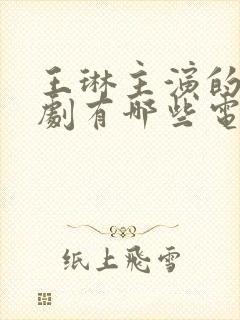 王琳主演的
劇有哪些電
纸上飛雪